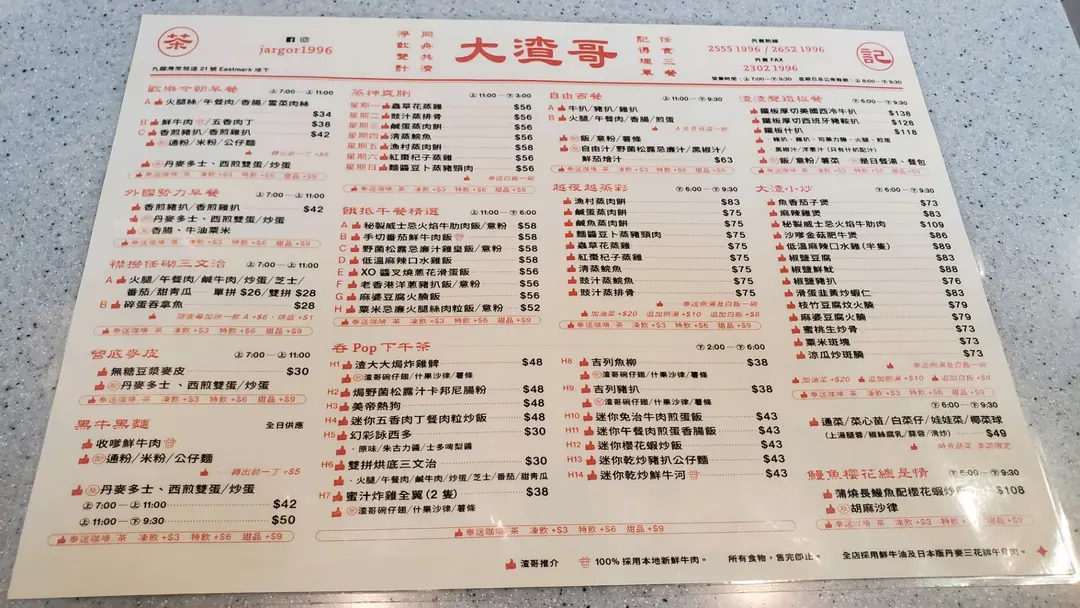 茶
jargor1996
九龍灣常悅道21號 Eastmark 地下
同舟共濟
淨飲雙計
大渣哥
任食三餐
記得埋單
外賣熱線
2555 1996 / 2652 1996
外賣 FAX
2302 1996
記
歡樂今朝早餐 上7:00 — 上11:00
A 火腿絲/午餐肉/香腸/雪菜肉絲 $34
B 鮮牛肉/五香肉丁 $38
C 香煎豬扒/香煎雞扒 $42
通粉/米粉/公仔麵
轉出前一丁 +$5
丹麥多士、西煎雙蛋/炒蛋
奉送咖啡、茶 凍飲+$3 特飲+$6 甜品+$9
外國勢力早餐 上7:00 — 上11:00
香煎豬扒/香煎雞扒 $42
丹麥多士、西煎雙蛋/炒蛋
香腸、牛油粟米
奉送咖啡、茶 凍飲+$3 特飲+$6 甜品+$9
襟撈任砌三文治 上7:00 — 上11:00
A 火腿/午餐肉/鹹牛肉/炒蛋/芝士/
番茄/甜青瓜 單拼 $26/雙拼 $28
B 碎蛋吞拿魚 $28
奉送咖啡、茶 凍飲+$3 特飲+$6 甜品+$9
窮底麥皮 上7:00 — 上11:00
無糖豆漿麥皮 $30
配丹麥多士、西煎雙蛋/炒蛋
奉送咖啡、茶 凍飲+$3 特飲+$6 甜品+$9
黑牛黑麵 全日供應
收嗲鮮牛肉
配通粉/米粉/公仔麵
轉出前一丁 +$5
及丹麥多士、西煎雙蛋/炒蛋
上7:00 — 上11:00 $42
上11:00 — 下9:30 $50
奉送咖啡/茶 凍飲+$3 特飲+$6 甜品+$9
蒸神真脷 上11:00 — 下3:00
星期一 蟲草花蒸雞 $56
星期二 豉汁蒸排骨 $56
星期三 鹹蛋蒸肉餅 $56
星期四 清蒸鯇魚 $56
星期五 漁村蒸肉餅 $56
星期六 紅棗杞子蒸雞 $56
星期日 麵醬豆卜蒸豬頸肉 $56
奉送白飯一碗
奉送咖啡、茶 凍飲+$3 特飲+$6 甜品+$9
餓抵午餐精選 上11:00 — 下6:00
A 秘製威士忌火焰牛肋肉飯/意粉 $58
B 手切番茄鮮牛肉飯 $58
C 野菌松露忌廉汁雞皇飯/意粉 $58
D 低溫麻辣口水雞飯 $58
E XO 醬叉燒蔥花滑蛋飯 $56
F 老香港洋蔥豬扒飯/意粉 $56
G 麻婆豆腐火腩飯 $56
H 粟米忌廉火腿絲肉粒飯/意粉 $52
奉送咖啡、茶 凍飲+$3 特飲+$6 甜品+$9
吞 Pop 下午茶 下2:00 — 下6:00
H1 渣大大焗炸雞髀 $48
配渣哥碗仔翅/什果沙律/薯條
H2 焗野菌松露汁卡邦尼腸粉 $48
H3 美帝熱狗 $48
H4 迷你五香肉丁餐肉粒炒飯 $48
H5 幻彩詠西多 $30
・原味/朱古力醬/士多啤梨醬
H6 雙拼烘底三文治 $30
・火腿/午餐肉/鹹牛肉/炒蛋/芝士/番茄/甜青瓜
H7 蜜汁炸雞全翼 (2 隻) $38
配渣哥碗仔翅/什果沙律/薯條
H8 吉列魚柳 $38
配渣哥碗仔翅/什果沙律/薯條
H9 吉列豬扒 $38
配渣哥碗仔翅/什果沙律/薯條
H10 迷你免治牛肉煎蛋飯 $43
H11 迷你午餐肉煎蛋香腸飯 $43
H12 迷你櫻花蝦炒飯 $43
H13 迷你乾炒豬扒公仔麵 $43
H14 迷你乾炒鮮牛河 $43
奉送咖啡/茶 凍飲+$3 特飲+$6 甜品+$9
自由西餐 上11:00 — 下9:30
A 牛扒/豬扒/雞扒
B 火腿/午餐肉/香腸/煎蛋
配飯/意粉/薯條
配自由汁/野菌松露忌廉汁/黑椒汁/
鮮茄燴汁 $63
奉送咖啡、茶 凍飲+$3 特飲+$6 甜品+$9
越夜越蒸彩 下6:00 — 下9:30
漁村蒸肉餅 $83
鹹蛋蒸肉餅 $75
鹹魚蒸肉餅 $75
麵醬豆卜蒸豬頸肉 $75
蟲草花蒸雞 $75
紅棗杞子蒸雞 $75
清蒸鯇魚 $75
豉汁蒸鯇魚 $75
豉汁蒸排骨 $75
奉送例湯及白飯一碗
加油菜+$20 追加例湯+$10 追加白飯+$8
奉送咖啡、茶 凍飲+$3 特飲+$6 甜品+$9
渣渣聲鐵板餐 下6:00 — 下9:30
鐵板厚切美國西冷牛扒 $138
鐵板厚切西班牙豬鞍扒 $128
鐵板什扒 $118
・黑椒汁/洋蔥汁 (只有什扒配汁)
飯/意粉/薯菜 是日餐湯、餐包
奉送咖啡、茶 凍飲+$3 特飲+$6 甜品+$9
大渣小炒 下6:00 — 下9:30
魚香茄子煲 $73
麻辣雞煲 $83
秘製威士忌火焰牛肋肉 $109
沙嗲金菇肥牛煲 $86
低溫麻辣口水雞(半隻) $89
椒鹽豆腐 $83
椒鹽鮮魷 $88
椒鹽豬扒 $76
滑蛋韭黃炒蝦仁 $83
枝竹豆腐炆火腩 $79
麻婆豆腐火腩 $79
蜜桃生炒骨 $73
粟米斑塊 $73
涼瓜炒斑腩 $73
奉送例湯及白飯一碗
加油菜+$20 追加例湯+$10 追加白飯+$8
奉送咖啡、茶 凍飲+$3 特飲+$6 甜品+$9
下6:00 — 下9:30
通菜/菜心苗/白菜仔/娃娃菜/椰菜球
(上湯鹽蓉/椒絲腐乳/蒜蓉/清炒) $49
鰻魚櫻花總是情 下6:00 — 下9:30
蒲燒長鰻魚配櫻花蝦炒 $108
及胡麻沙律
奉送咖啡/茶 凍飲+$3 特飲+$6 甜品+$9
渣哥推介 100% 採用本地新鮮牛肉。 所有食物，售完即止。 全店採用鮮牛油及日本版丹麥三花牌